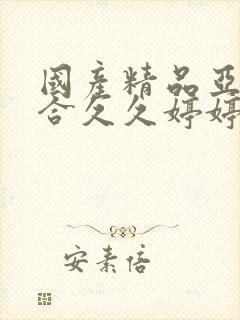 國產精品亞
合久久婷婷
安素倍